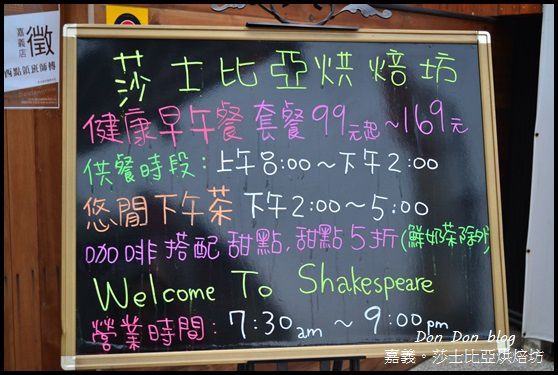 嘉義店
徵
西點領班師傅
莎士比亞烘焙坊
健康早午餐 套餐99元起~169元
供餐時段:上午8:00~下午2:00
悠閒下午茶 下午2:00~5:00
咖啡搭配甜點,甜點5折(鮮奶茶除外)
Welcome To Shakespeare
營業時間:7:30am~9:00pm
Don Don blog
嘉義。莎士比亞烘焙坊